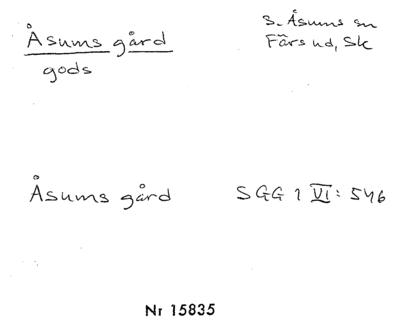 Åsums gård
gods
S. Åsums sn
Färs hd, Sk
Åsums gård
SGG 1 VI: 546
Nr 15835